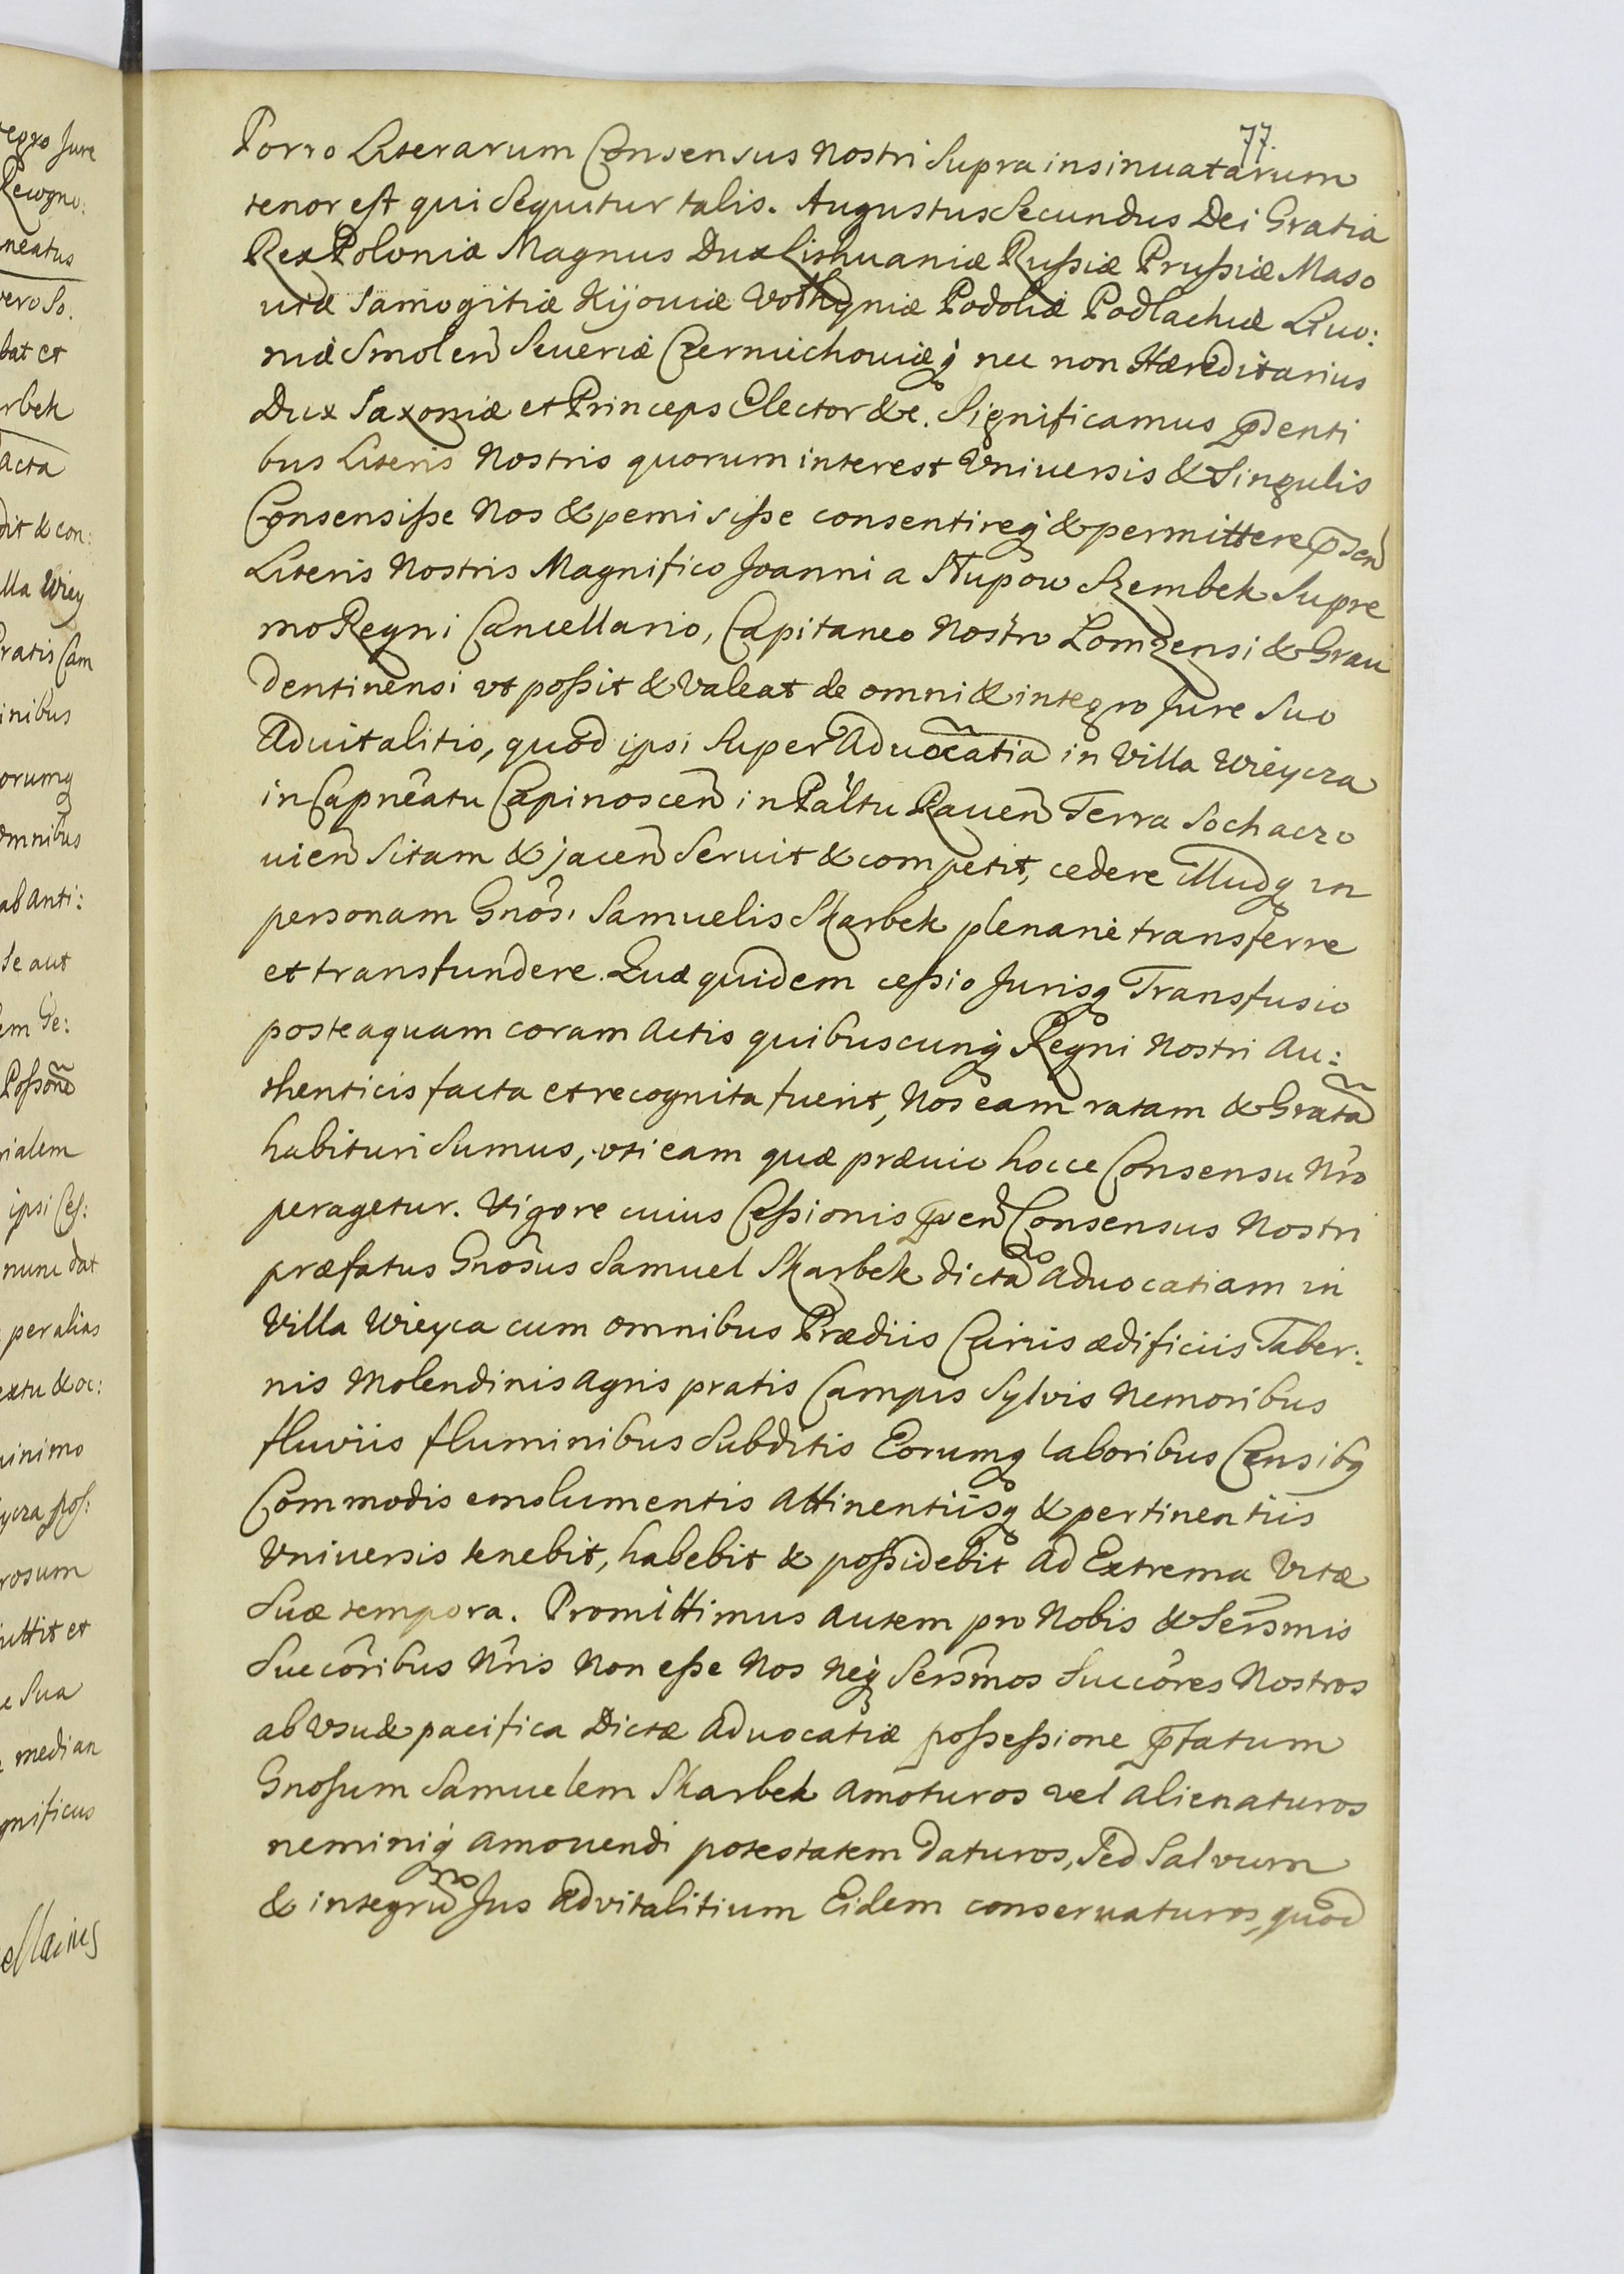 77.
Porro Literarum Consensus Nostri Supra insinuatarum
tenor est qui Sequitur talis. Augustus Secundus Dei Gratia
Rex Poloniæ Magnus Dux Lithuaniæ Rußiæ Prußiæ Maso
uiæ Samogitiæ Kijouiæ Volhyniæ Podoliæ Podlachiæ Liuo:
niæ Smolen̄ Seueriæ Czerniechouiæq́ nec non Hæreditarius
Dux Saxoniæ et Princeps Elector &c. Significamus p̄senti
bus Literis Nostris quorum interest Vniuersis & Singulis
Consensiße Nos & permisiße consentireq́ & permittere p̄sen̄
Literis Nostris Magnifico Joanni a Słupow Szembek Supre
mo Regni Cancellario, Capitaneo Nostro Lomzensi & Grau
dentinensi vt poßit & Valeat de omni & integro Jure Suo
Aduitalitio, quod ipsi Super Aduocãtia in Villa Wieycza
in Capnêatu Capinoscen̄ in Pal̂tu Rauen̄ Terra Sochaczo
uien̄ Sitam & jacen̄ Seruit & competit, cedere illudq́ in
personam Gnôsi Samuelis Skarbek plenariè transferre
et transfundere. Quæ quidem ceßio Jurisq́ Transfusio
posteaquam coram Actis quibuscunq́ Regni Nostri Au:
thenticis facta et recognita fuerit, Nos eam ratam & Gratã
habituri Sumus, vti eam quæ præuio hocce Consensu Nr̂o
peragetur. Vigore cuius Ceßionis p̄sen̄ Consensus Nostri
præfatus Gnôsus Samuel Skarbek dictã Aduocatiam in
Villa Wieyca cum omnibus Prædiis Curiis ædificiis Taber:
nis Molendinis Agris pratis Campis Sylvis Nemoribus
fluviis fluminibus Subditis Eorumq́ laboribus Censibq
Commodis emolumentis Attinentiisq́ & pertinentiis
Vniuersis tenebit, habebit & poßidebit ad Extrema Vitæ
Suæ tempora. Promittimus autem pro Nobis & Serŝmis
Succôribus Nr̂is Non eße Nos Neq́ Serŝmos Succôres Nostros
ab Vsu & pacifica Dictæ Aduocatiæ poßeßione p̄fatum
Gnosum Samuelem Skarbek amoturos vel Alienaturos
neminiq́ amouendi potestatem daturos, Sed Salvum
& integrũ Jus Advitalitium Eidem conseruaturos, quod